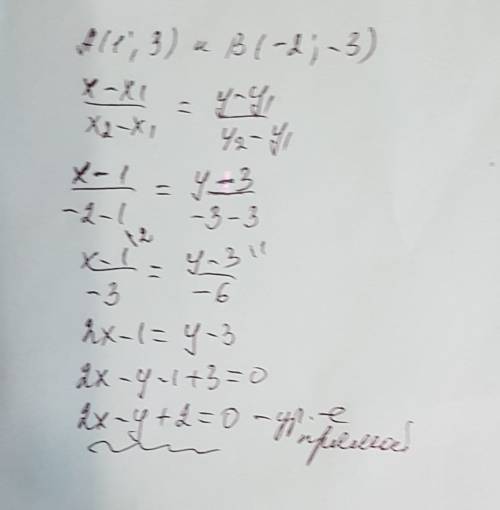 A(1; 3) и B(-2; -3)
x-x₁/x₂-x₁ = y-y₁/y₂-y₁
x-1/-2-1 = y-3/-3-3
x-1/-3 \2 = y-3/-6 \1
2x-1=y-3
2x-y-1+3=0
2x-y+2=0 - ур-е
прямой